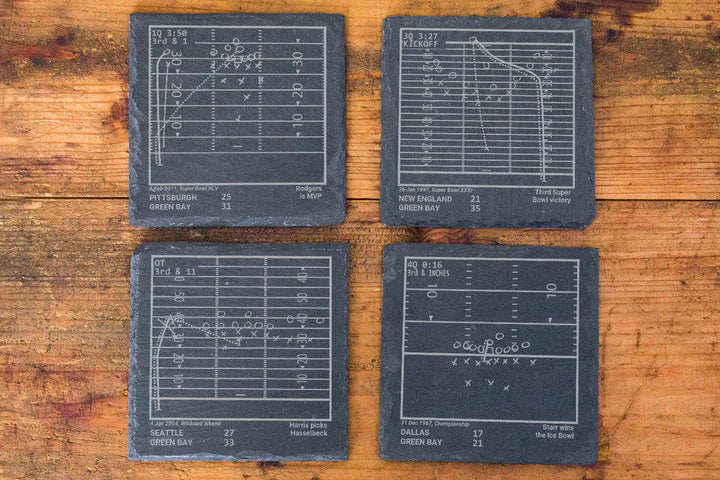 1Q 3:50
3rd & 1
30 30
20 20
10 10
6 Feb 2011, Super Bowl XLV
PITTSBURGH 25
GREEN BAY 31
Rodgers
is MVP
3Q 3:27
KICKOFF
26 Jan 1997, Super Bowl XXXI
NEW ENGLAND 21
GREEN BAY 35
Third Super
Bowl victory
OT
3rd & 11
40
50 50
40 40
30 30
20 20
10 10
4 Jan 2004, Wildcard Wkend
SEATTLE 27
GREEN BAY 33
Harris picks
Hasselbeck
4Q 0:16
3rd & INCHES
10 10
31 Dec 1967, Championship
DALLAS 17
GREEN BAY 21
Starr wins
the Ice Bowl